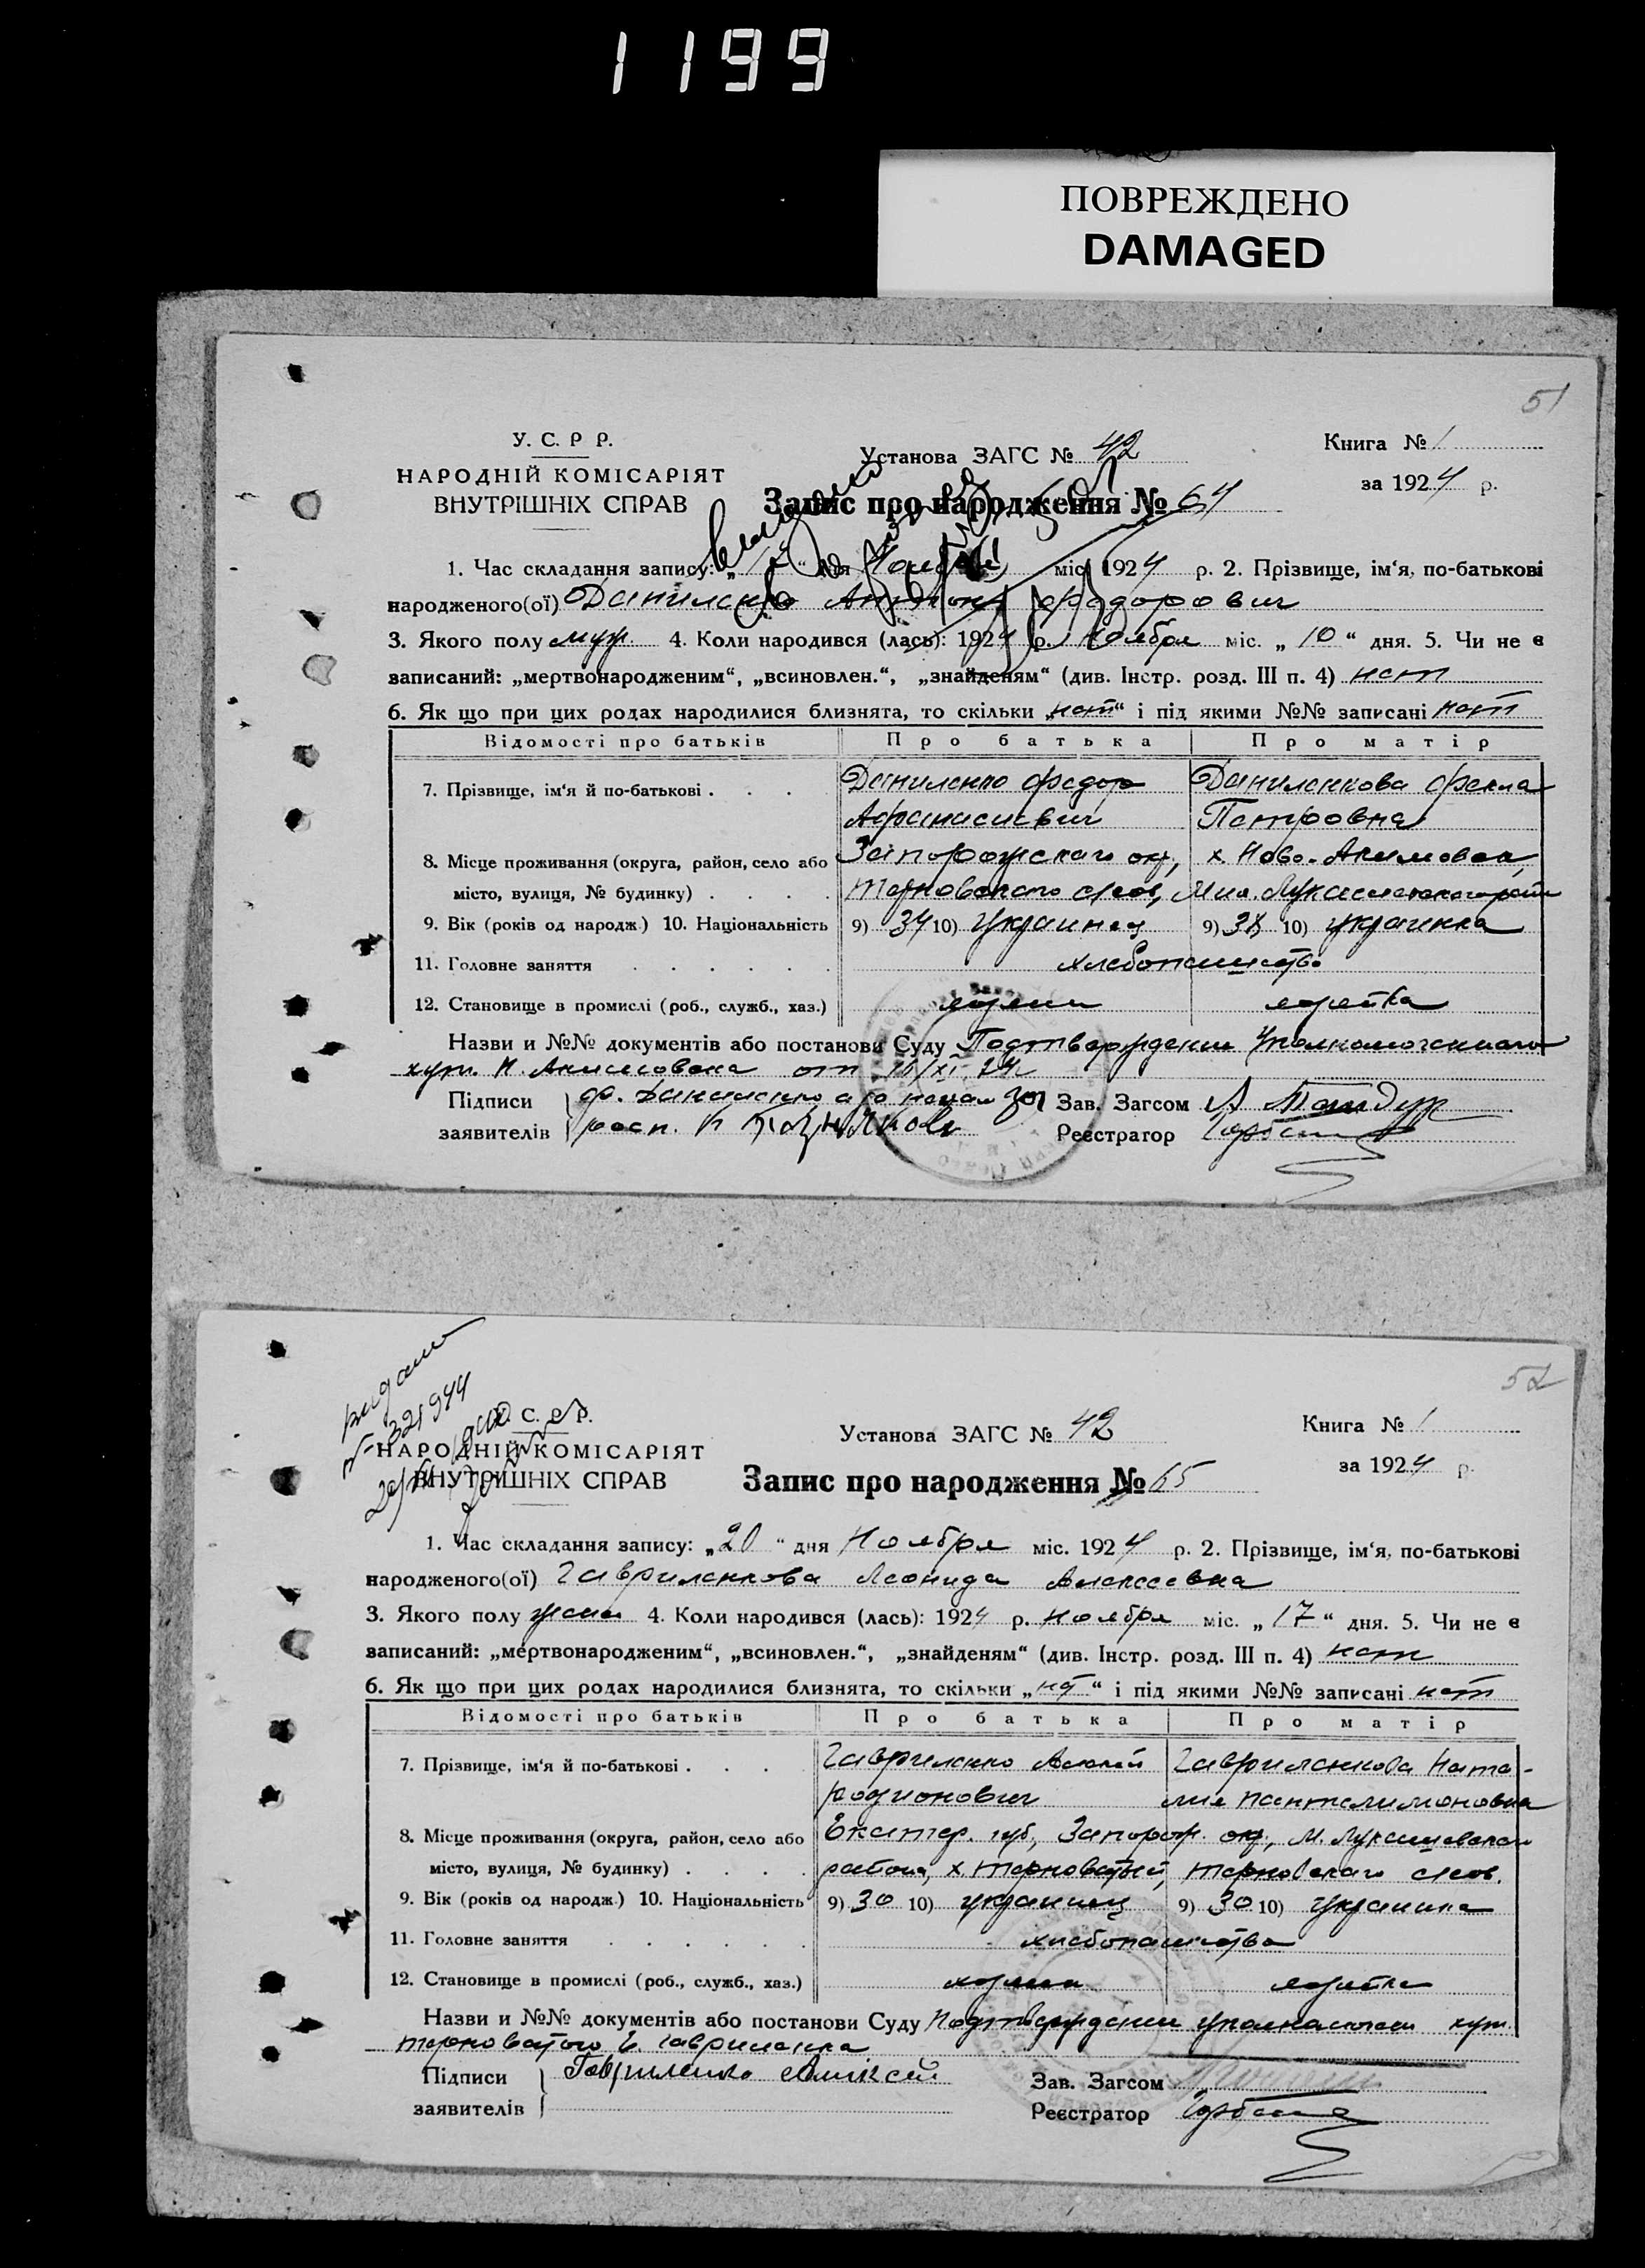 1199
ПОВРЕЖДЕНО
DAMAGED
51
У. С. Р Р.
НАРОДНІЙ КОМІСАРІЯТ
ВНУТРІШНІХ СПРАВ
Установа ЗАГС № 42
Книга № 1
за 1924 р.
Запис про народження № 64
1. Час складання запису: „ “ дня Ноября міс. 1924 р. 2. Прізвище, ім‘я, по-батькові
народженого(ої) Даниленко Антон Федорович
3. Якого полу муж. 4. Коли народився (лась): 1924 р. Ноября міс. „ 10 “ дня. 5. Чи не є
записаний: „мертвонародженим“, „всиновлен.“, „знайденям“ (див. Інстр. розд. III п. 4) нет
6. Як що при цих родах народилися близнята, то скільки „нет“ і під якими №№ записані нет
Відомості про батьків Про батька Про матір
7. Прізвище, ім‘я й по-батькові . . . Даниленко Федор Даниленкова Фекла
Афанасиевич Петровна
8. Місце проживання (округа, район, село або Запорожскаго окр., х. Ново-Акимовка,
місто, вулиця, № будинку) . . . . Терновского с/сов,
9. Вік (років од народж.) 10. Національність 9) 34 10) украинец 9) 38 10) украинка
11. Головне заняття . . . . . . хлебопашество
12. Становище в промислі (роб., служб., хаз.) хозяин хозяйка
Назви и №№ документів або постанови Суду Подтверждение Уполномоченного
хут. Н. Акимовка от
Підписи Ф. Даниленко а за него
заявителів расп.
Зав. Загсом
Реєстратор
52
У. С. Р Р.
НАРОДНІЙ КОМІСАРІЯТ
ВНУТРІШНІХ СПРАВ
Установа ЗАГС № 42
Книга № 1
за 1924 р.
Запис про народження № 65
1. Час складання запису: „20 “ дня Ноября міс. 1924 р. 2. Прізвище, ім‘я, по-батькові
народженого(ої) Гавриленкова Леонида Алексеевна
3. Якого полу жен. 4. Коли народився (лась): 1924 р. Ноября міс. „ 17 “ дня. 5. Чи не є
записаний: „мертвонародженим“, „всиновлен.“, „знайденям“ (див. Інстр. розд. III п. 4) нет
6. Як що при цих родах народилися близнята, то скільки „нет“ і під якими №№ записані нет
Відомості про батьків Про батька Про матір
7. Прізвище, ім‘я й по-батькові . . . . Гавриленко Алексей Гавриленкова Ната-
Родионович лия Пантелимоновна
8. Місце проживання (округа, район, село або Екатер. губ, Запорож. окр., М. Лукашевского
місто, вулиця, № будинку) . . . . района, х. Терноватый, Терновского с/сов.
9. Вік (років од народж.) 10. Національність 9) 30 10) украинец 9) 30 10) украинка
11. Головне заняття . . . . . . хлебопашество
12. Становище в промислі (роб., служб., хаз.) хозяин хозяйка
Назви и №№ документів або постанови Суду Подтверждение хут.
Гавриленка
Підписи Гавриленко
заявителів
Зав. Загсом
Реєстратор